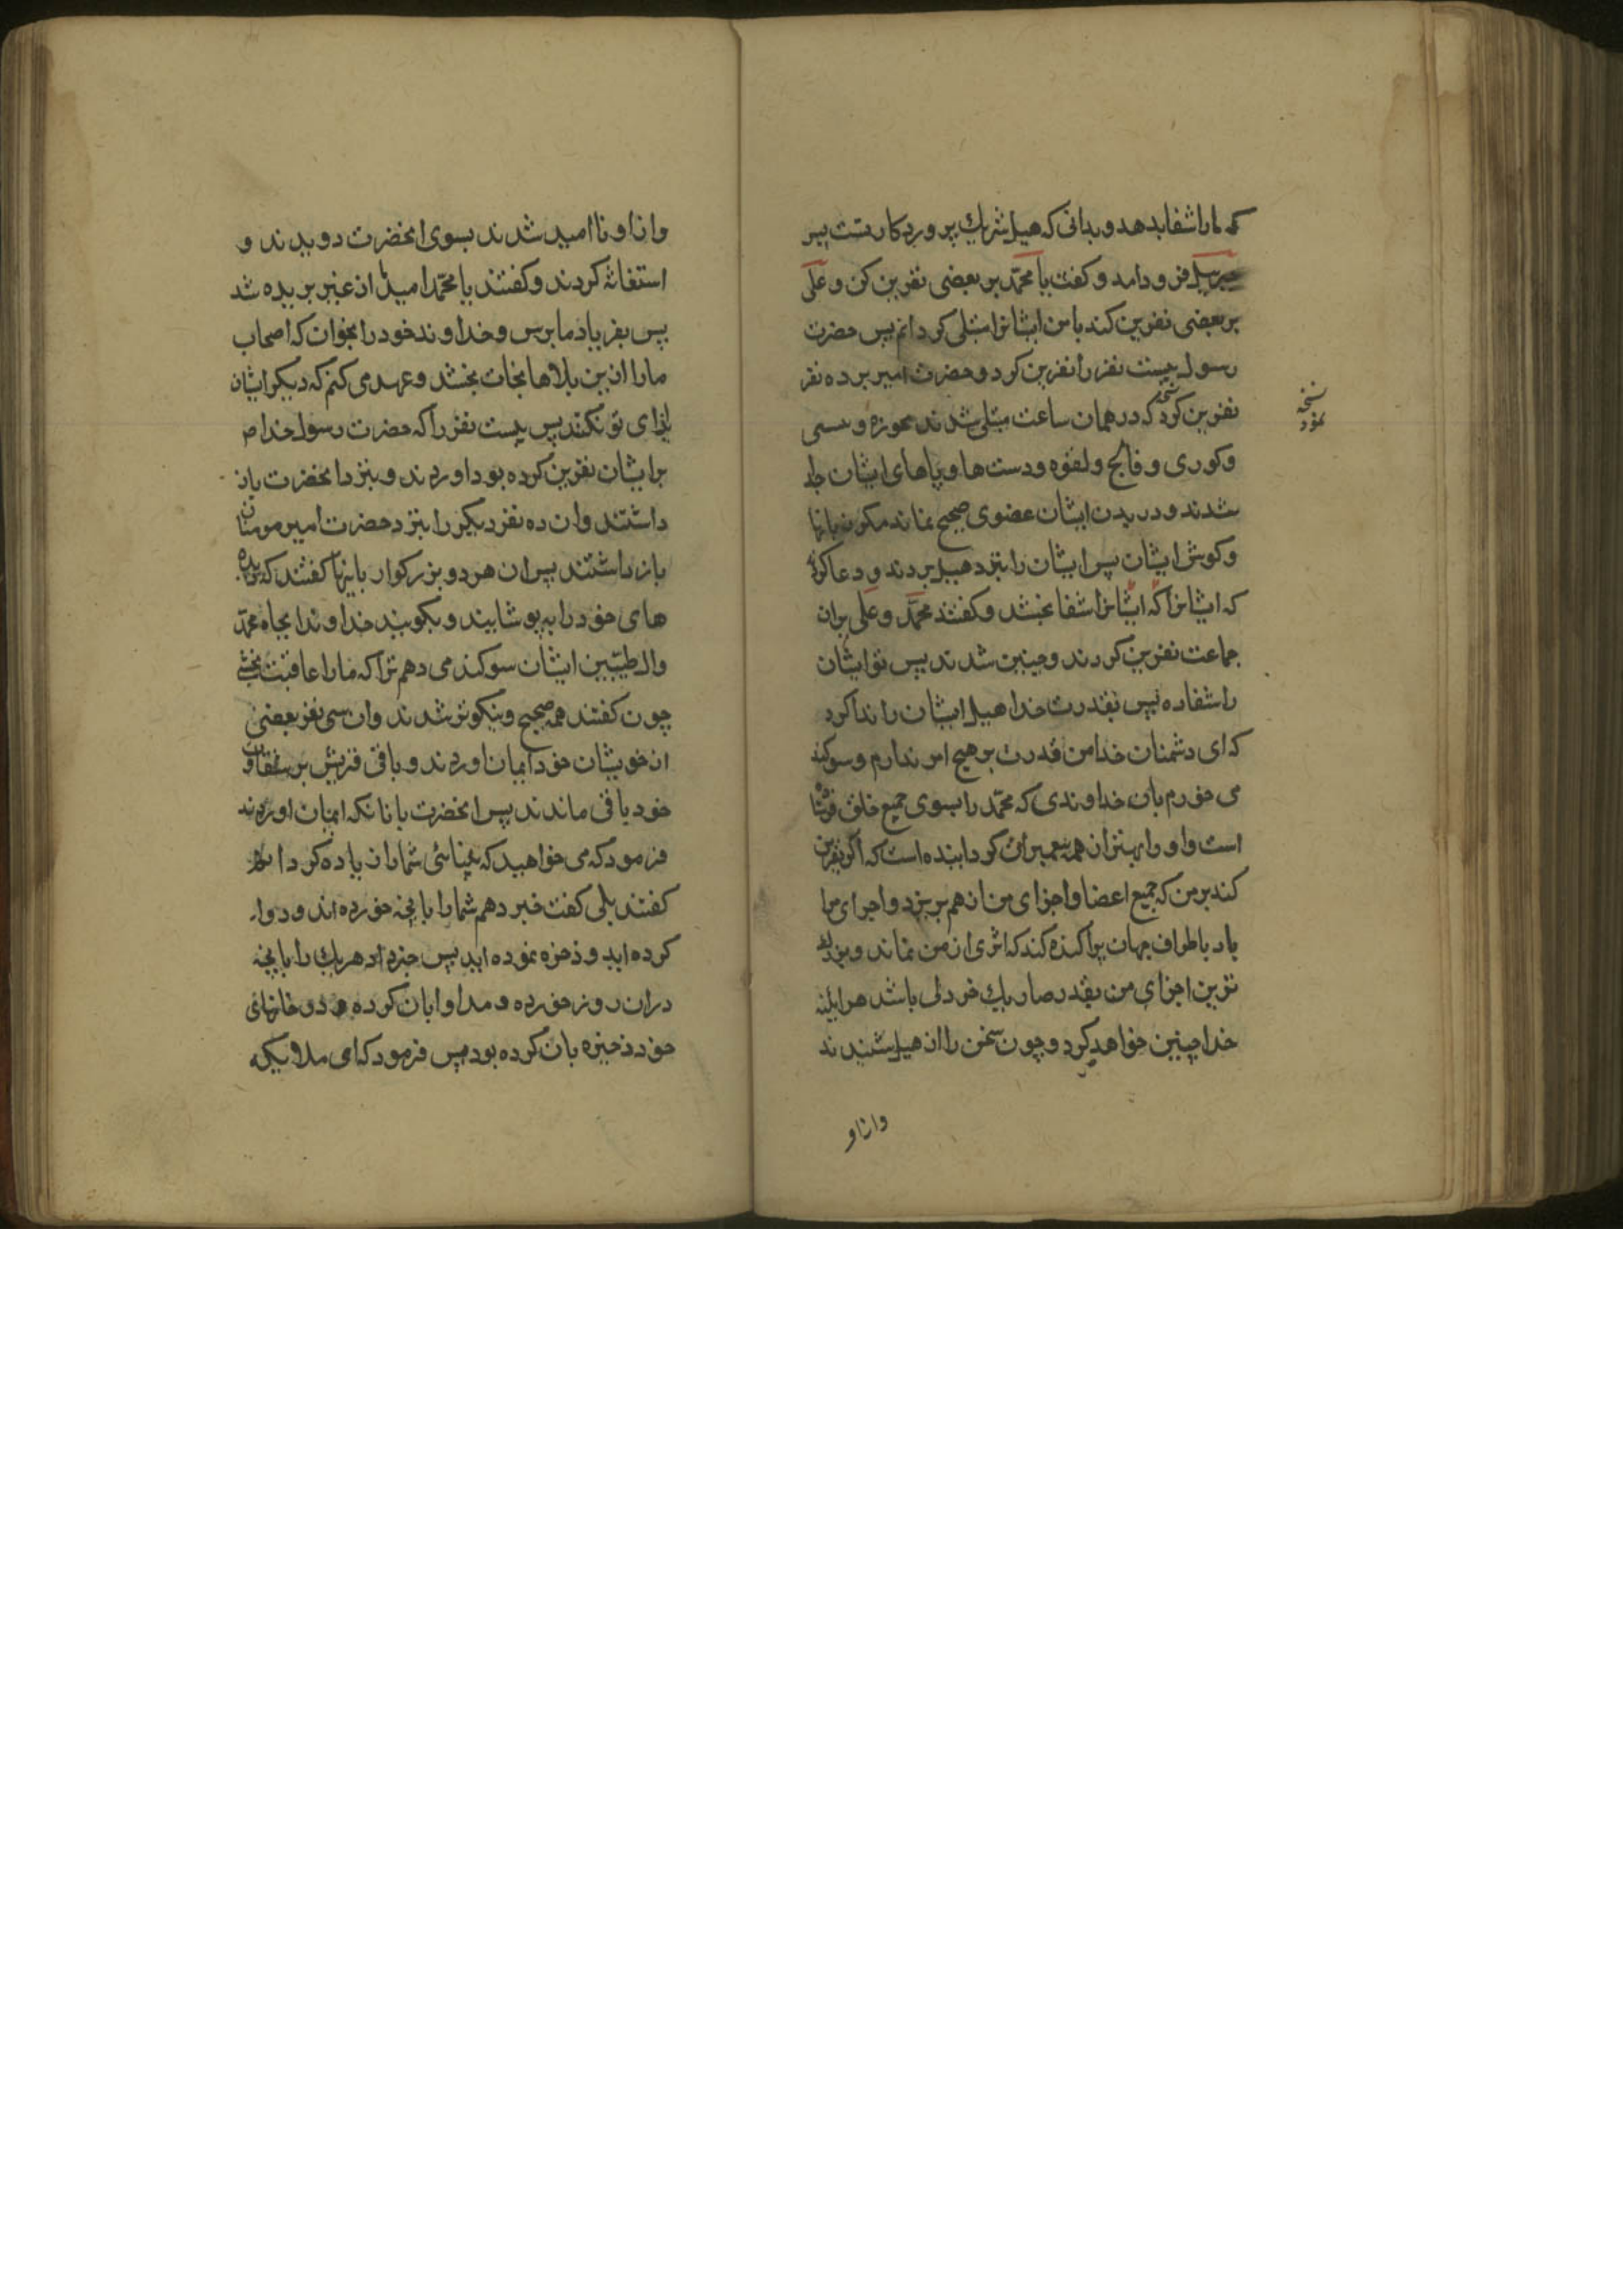 که مارا شفا بدهد و بدانی که هبل شریک پروردکار تست پس
جبرییل فرود امد و کفت یا محمد بر بعضی نفرین کن و علی
بر بعضی نفرین کند تا من ایشانرا مبتلی کردانم پس حضرت
رسول بیست نفر را نفرین کرد و حضرت امیر بر ده نفر
نفرین کرد که در همان ساعت مبتلی شدند بخوره و پیسی
نسخه
نمود
وکوری و فالج و لقوه و دست ها و پاهای ایشان جدا
شدند و در بدن ایشان عضوی صحیح نماند مکر زبانها
وکوش ایشان پس ایشان را بنزد هبل بردند و دعا کردند
که ایشانرا که ایشانرا شفا بخشد و کفتند محمد و علی بران
جماعت نفرین کردند و چنین شدند پس تو ایشان
را شفا ده پس بقدرت خدا هبل ایشان را ندا کرد
که ای دشمنان خدا من قدرت بر هیچ امر ندارم و سوکند
می خورم بان خداوندی که محمد را بسوی جمیع خلق فرستاده
است و او را بهتر از همه پیغمبران کردانیده است که اکر نفرین
کند بر من که جمیع اعضا و اجزای من از هم بریزد و اجزای مرا
باد باطراف جهان پراکنده کند که اثری از من نماند و بزرک
ترین اجزای من بقدر صد یک خردلی باشد هر اینه
خدا چنین خواهد کرد و چون سخن را از هبل شنیدند
و از او
و از او نا امید شدند بسوی انحضرت دویدند و
استغاثه کردند و کفتند یا محمد امید ما از غیر بریده شد
پس بفریاد ما برس و خداوند خود را بخوان که اصحاب
مارا ازین بلاها نجات بخشد و عهد می کنم که دیکر ایشان
ایذای تو نکنند پس بیست نفر را که حضرت رسول خدا ص
بر ایشان نفرین کرده بود اوردند و بنزد انحضرت باز
داشتند و ان ده نفر دیکر را بنزد حضرت امیر مومنان
باز داشتند پس ان هر دو بزرکوار باینها کفتند که دیده
های خود را بپوشانید و بکویید خداوندا بجاه محمد
وال طیبین ایشان سوکند می دهم ترا که مارا عافیت بخشی
چون کفتند همه صحیح و نیکوتر شدند وان سی نفر بعضی
از خویشان خود ایمان اوردند و باقی قریش بر شقاوت
خود باقی ماندند پس انحضرت بانانکه ایمان اوردند
فرمود که می خواهید که بینائی شما را زیاده کردانم
کفتند بلی کفت خبر دهم شمارا بانچه خورده اند و دوا
کرده اید و ذخره نموده اید پس خبر داد هر یک را بانچه
دران روز خورده و مداوا بان کرده و در خانهای
خود ذخیره بان کرده بود پس فرمود که ای ملایکه